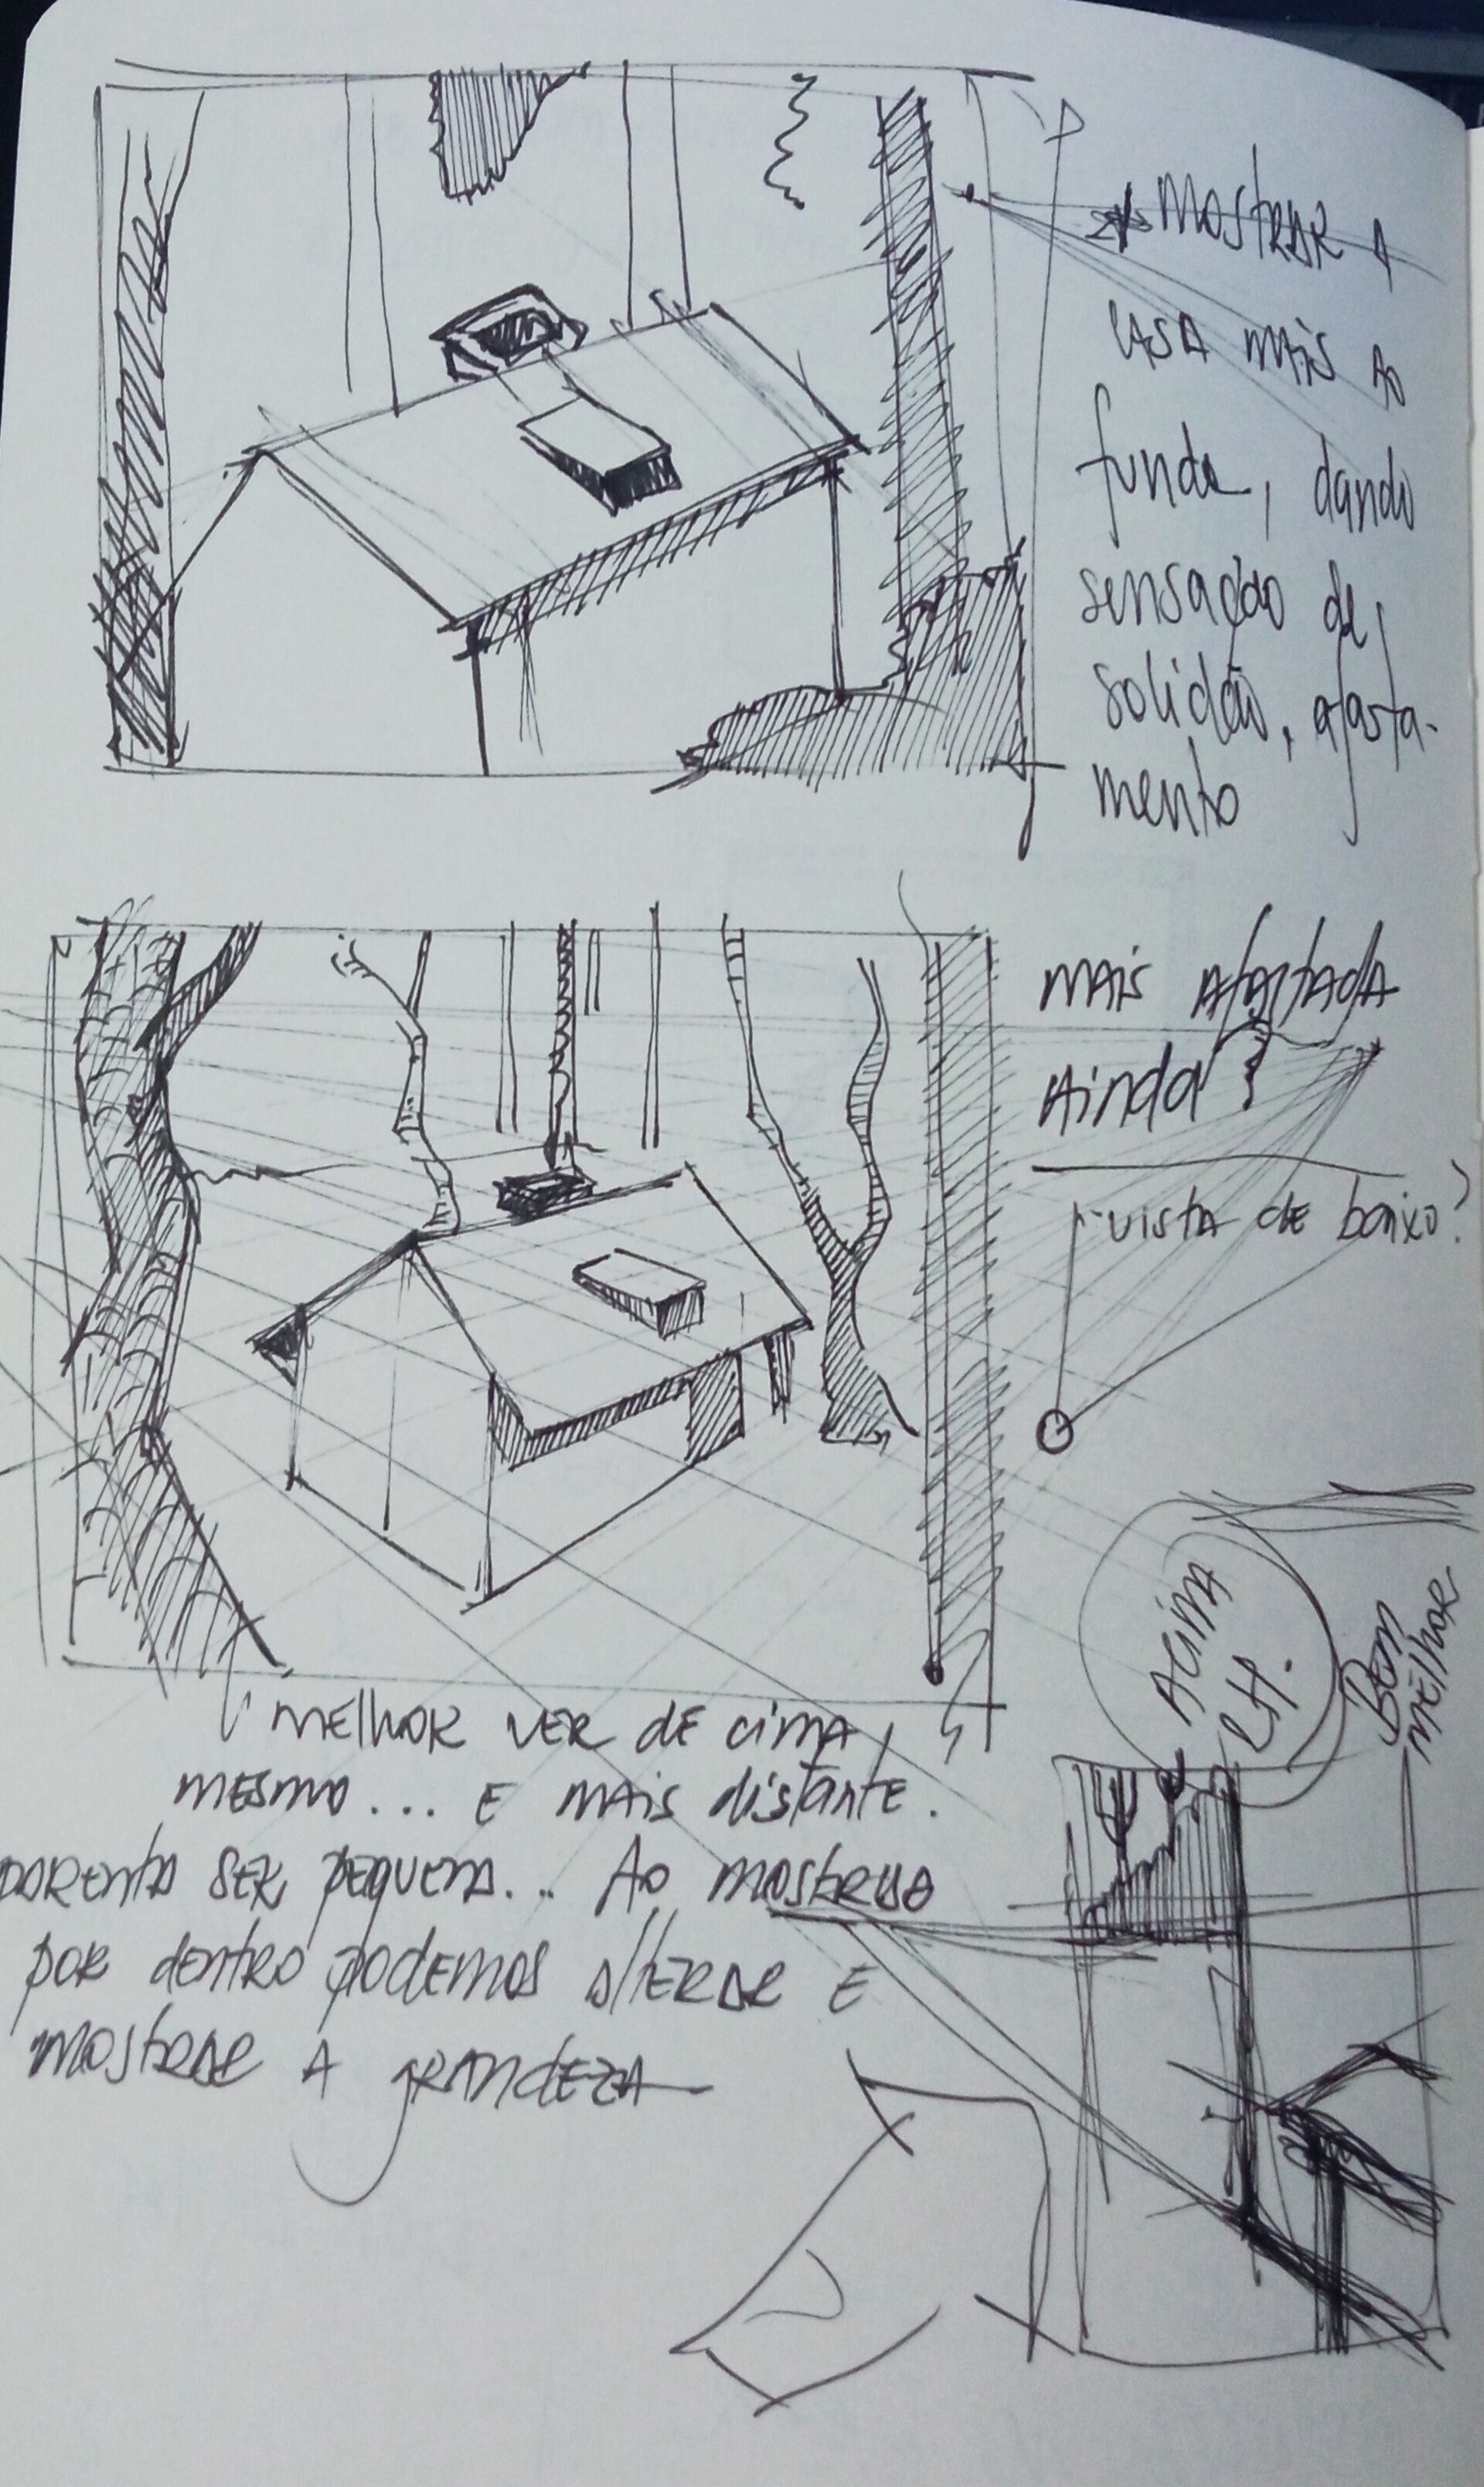 MOSTRAR A
CASA MAIS AO
fundo, dando
sensação de
solidão, afasta-
mento
MAIS AfastADA
AindA?
vista de baixo?
ACIMA
LH.
BEM
MELhOR
MELhOR VER dE CIMA
MESMO... E MAIS distANTE.
SER pEQUENA... Ao MOSTRAR
pOR dENTRO pODEMOS AlTERAR E
MOSTRAR A GRANdEZA